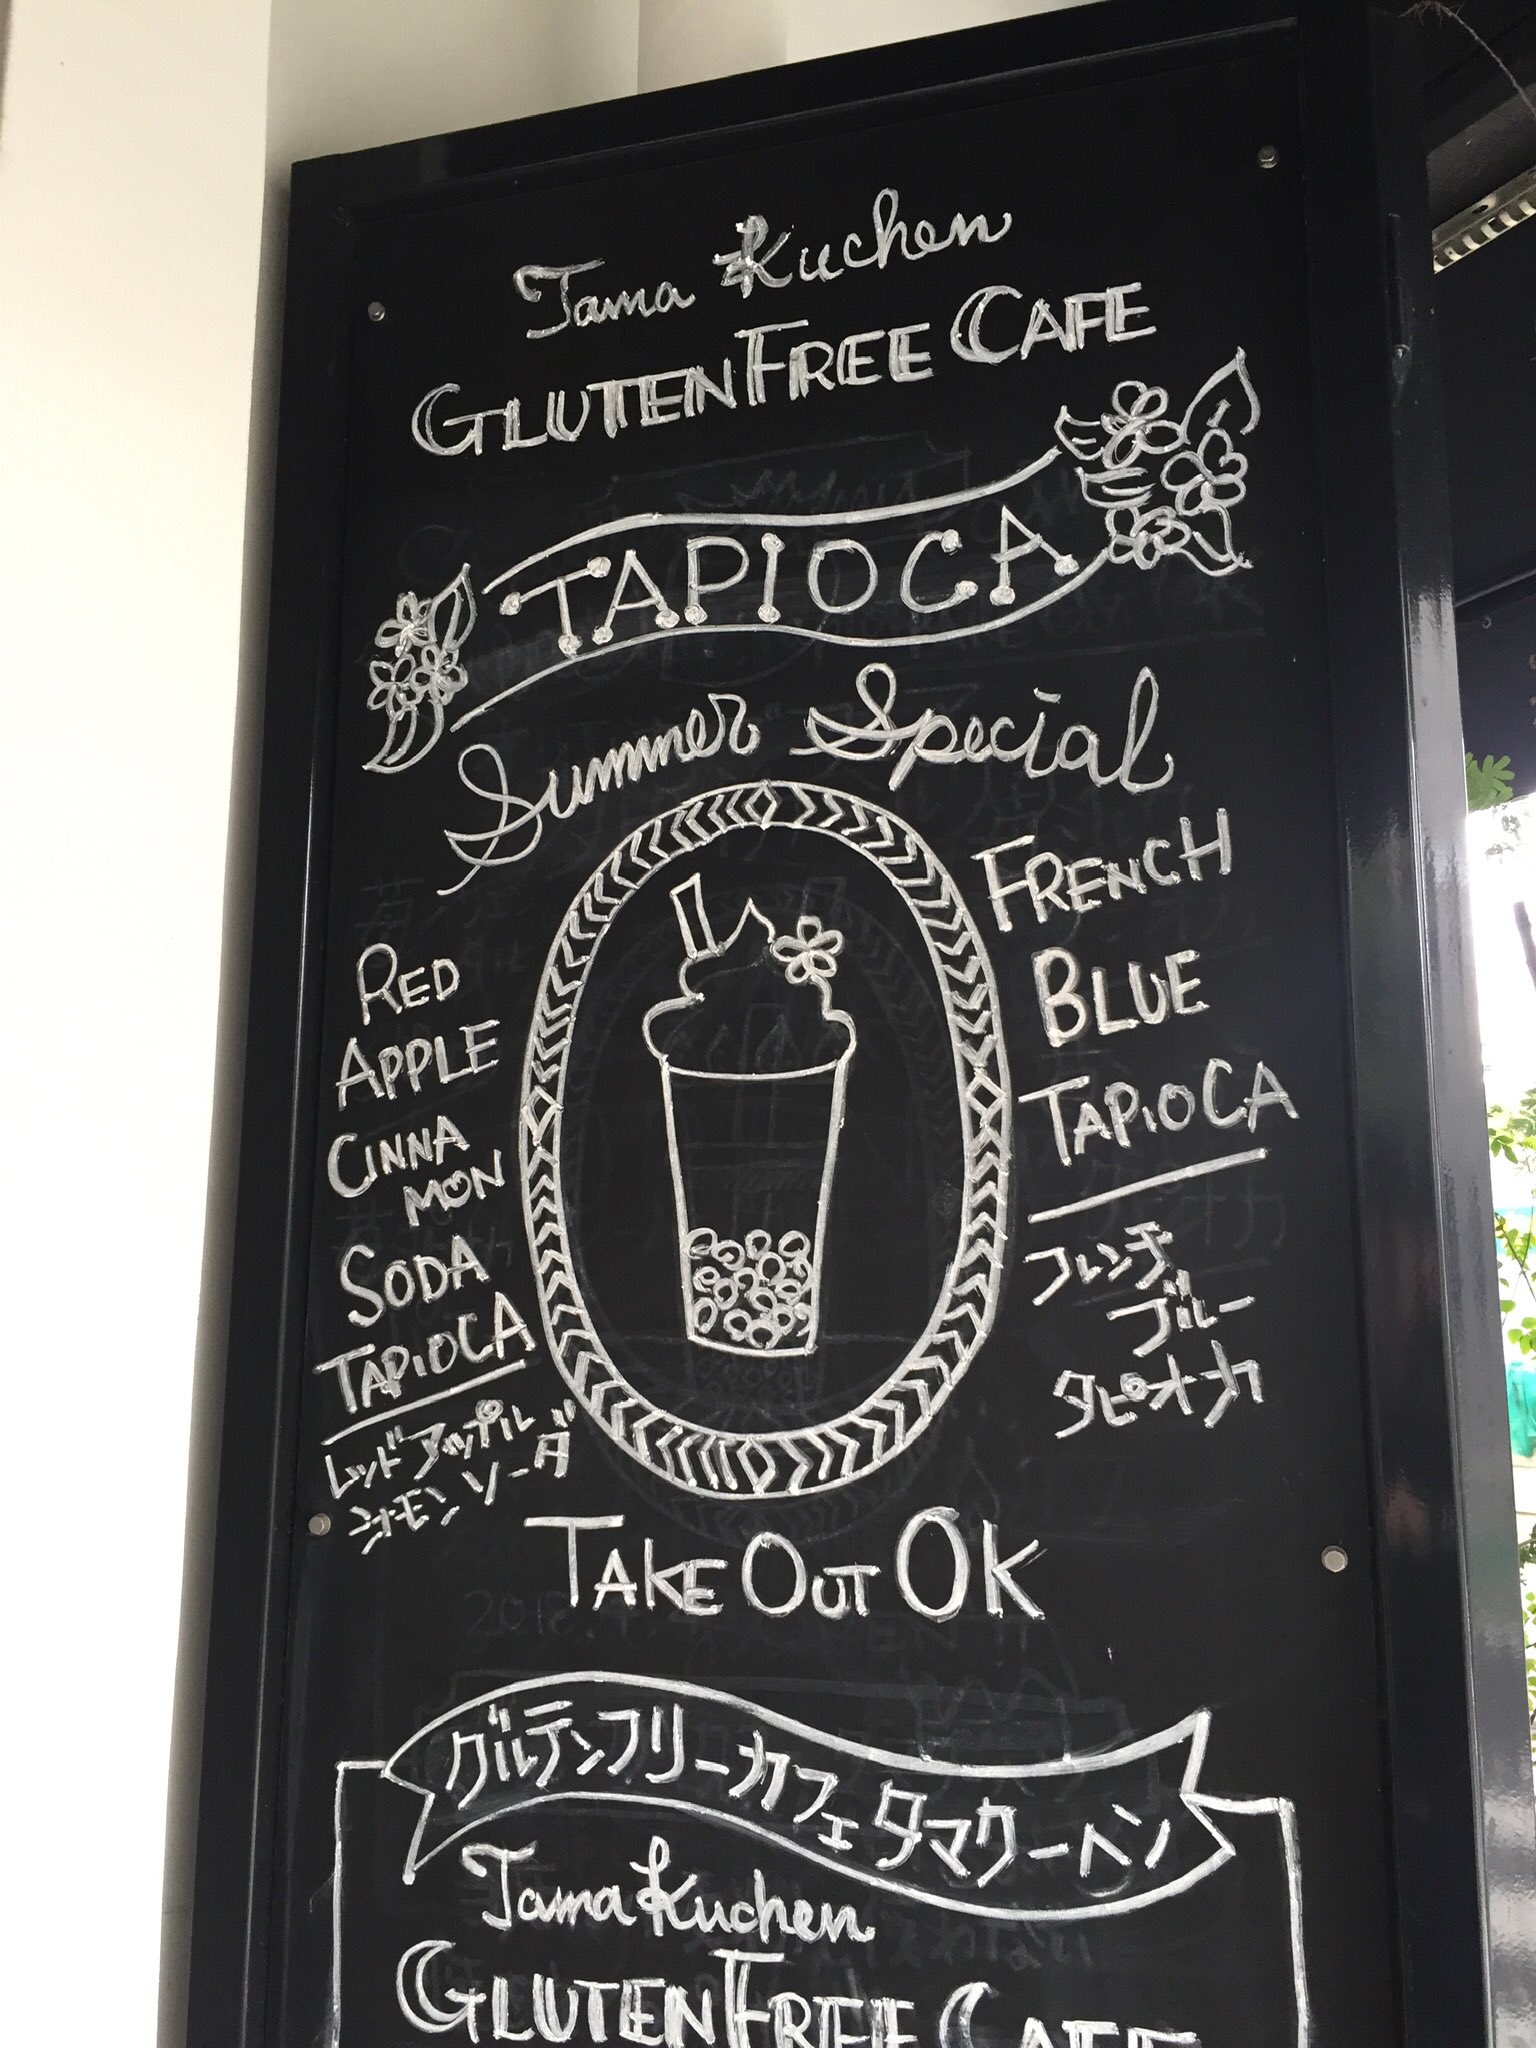 Tama Kuchen
GLUTEN FREE CAFE
TAPIOCA
Summer Special
RED
APPLE
CINNA
MON
SODA
TAPIOCA
レッドアップル
シナモンソーダ
FRENCH
BLUE
TAPIOCA
フレンチ
ブルー
タピオカ
TAKE OUT OK
グルテンフリーカフェ タマクーヘン
Tama Kuchen
GLUTEN FREE CAFE